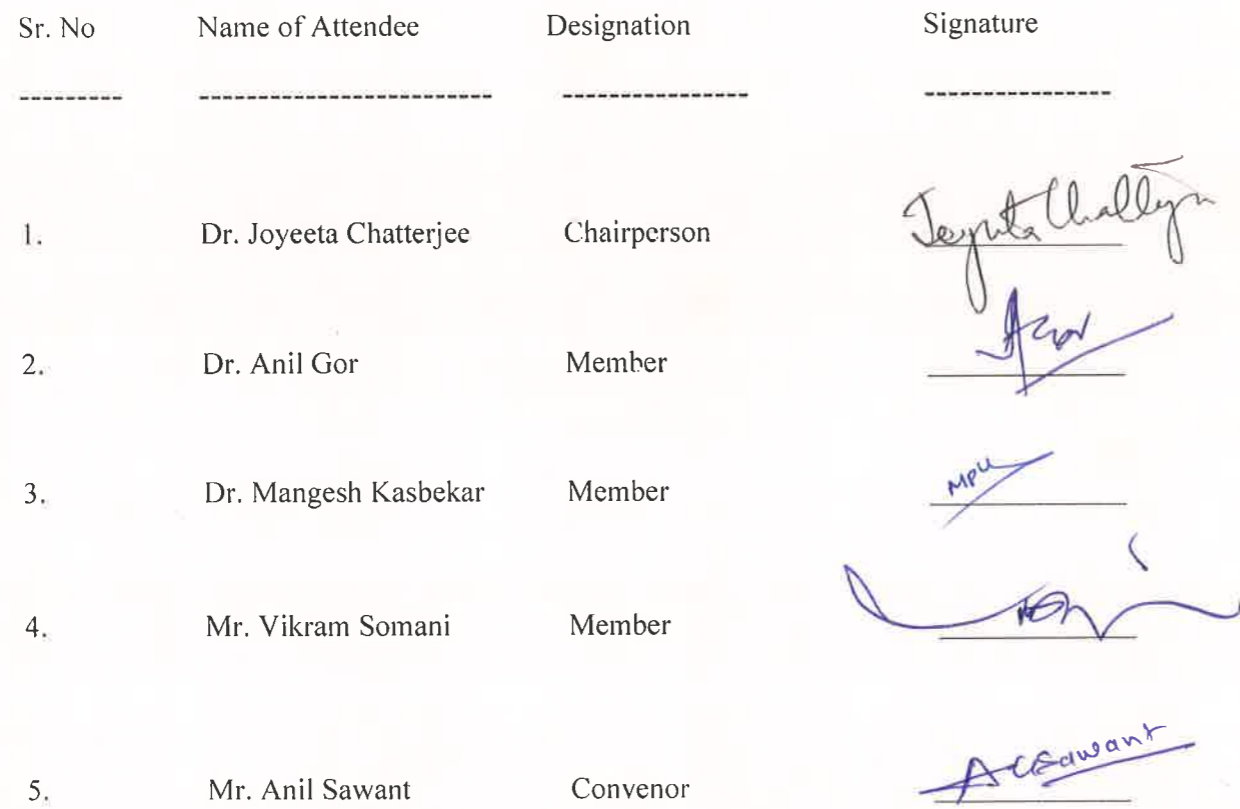 Sr. No Name of Attendee Designation Signature
--------- -------------------------- ---------------- ----------------
1. Dr. Joyeeta Chatterjee Chairperson
2. Dr. Anil Gor Member
3. Dr. Mangesh Kasbekar Member
4. Mr. Vikram Somani Member
5. Mr. Anil Sawant Convenor